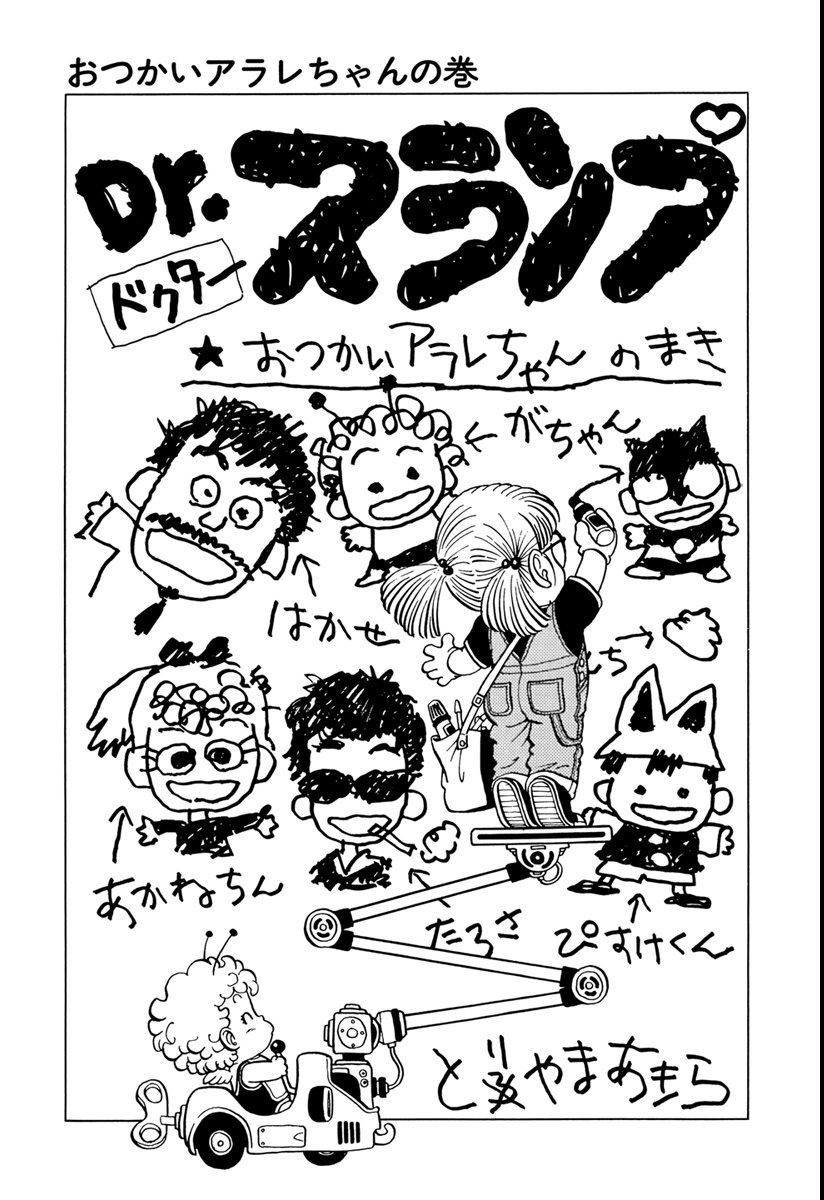 おつかいアラレちゃんの巻
Dr.スランプ
ドクター
★おつかいアラレちゃんのまき
がちゃん
はかせ
ち
あかねちん
たろさ
ぴすけくん
とりやまあきら